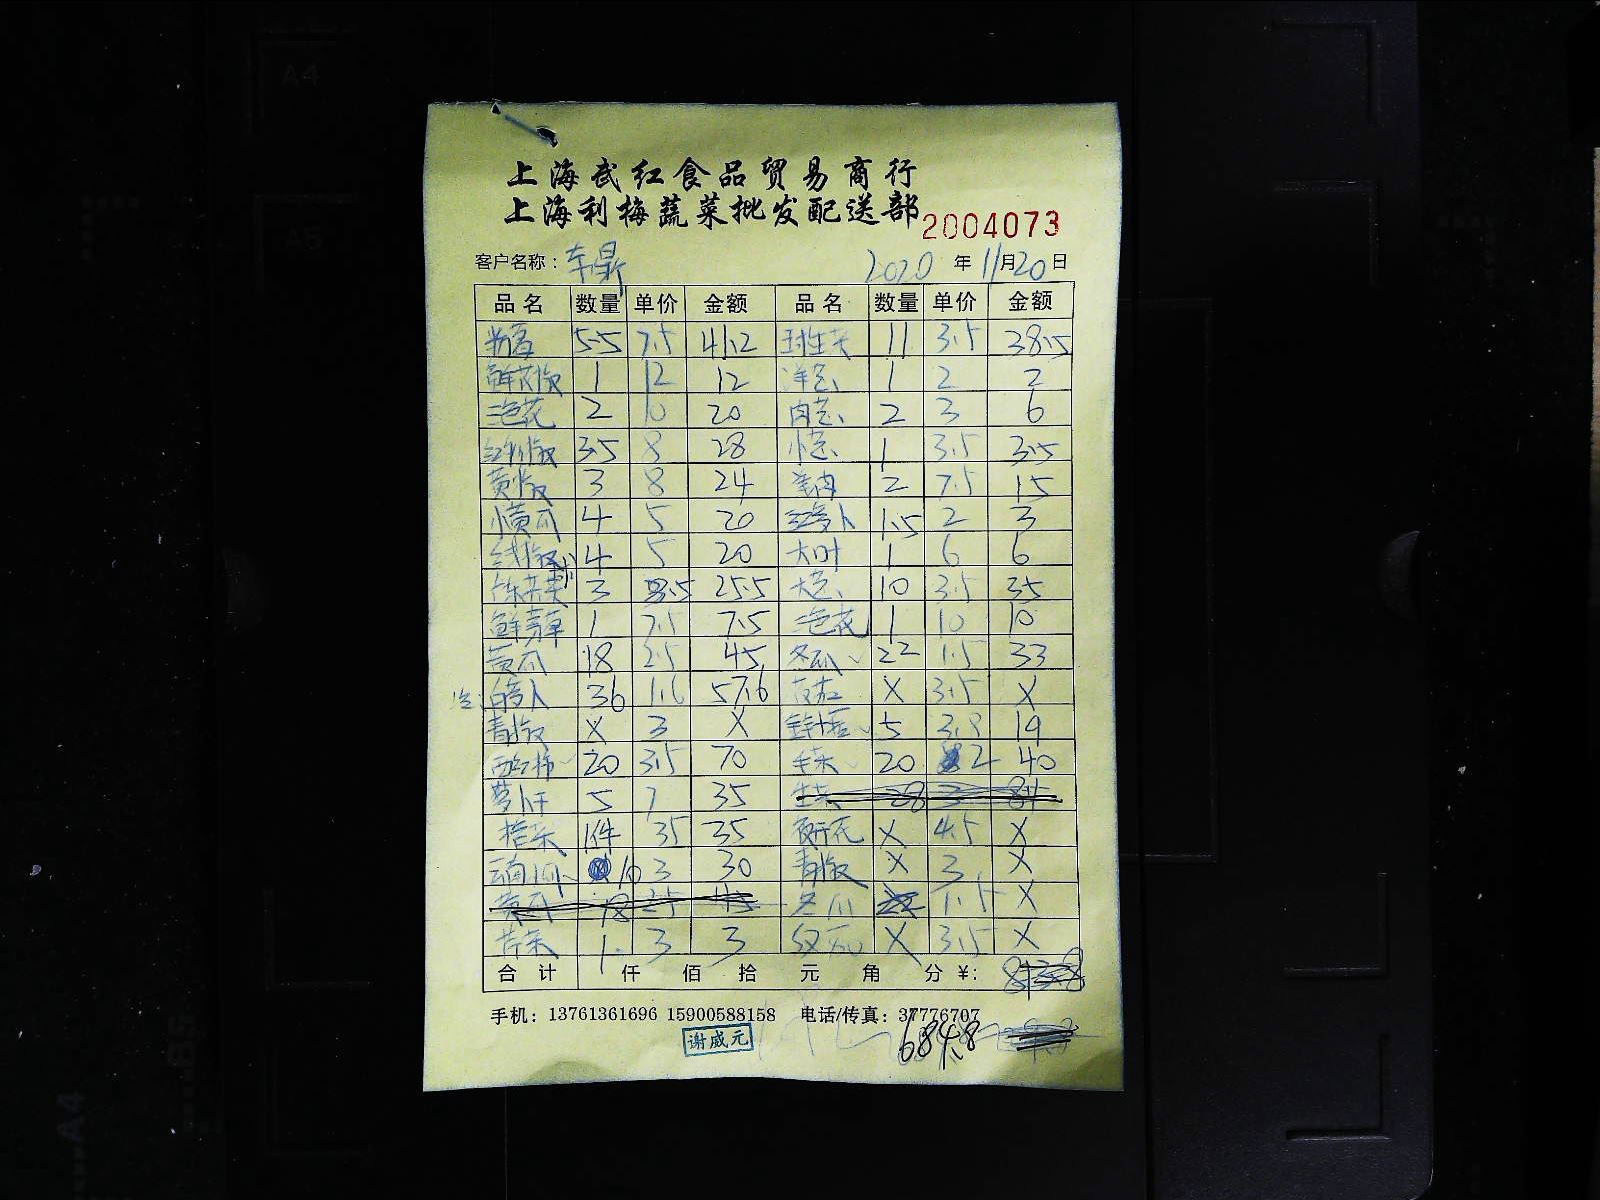 上海武红食品贸易商行
上海利梅蔬菜批发配送部 2004073
客户名称: 车鼎 2020 年 11 月 20 日
品名 数量 单价 金额 品名 数量 单价 金额
5.5 7.5 41.2 球生菜 11 3.5 38.5
鲜花椒 1 12 12 洋葱 1 2 2
三色花 2 10 20 肉葱 2 3 6
红椒 3.5 8 28 小葱 1 3.5 3.5
黄椒 3 8 24 姜肉 2 7.5 15
小黄瓜 4 5 20 红萝卜 1.5 2 3
线椒 4 5 20 大叶 1 6 6
3 8.5 25.5 大葱 10 3.5 35
鲜草 1 7.5 7.5 三色花 1 10 10
黄瓜 18 2.5 45 冬瓜 22 1.5 33
白萝卜 36 1.6 57.6 茄 X 3.5 X
青椒 X 3 X 金针菇 5 3.8 19
西红柿 20 3.5 70 生菜 20 2 40
萝卜干 5 7 35 生菜 28 3 84
搭菜 1件 35 35 X 4.5 X
云南小瓜 10 3 30 青椒 X 3 X
黄瓜 18 2.5 45 冬瓜 1.5 X
苦菜 1 3 3 X 3.5 X
合计 仟 佰 拾 元 角 分 ¥:
手机: 13761361696 15900588158 电话/传真: 37776707
谢威元 684.8